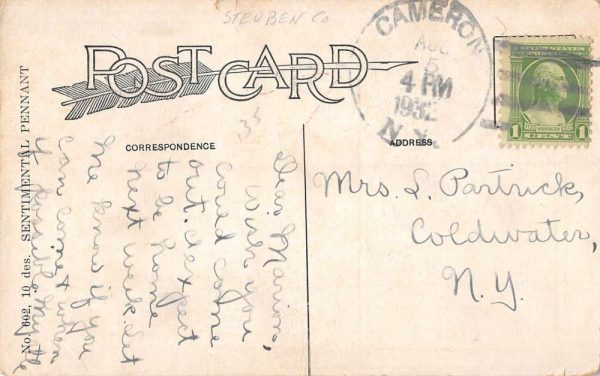 STEUBEN CO
POST CARD
CAMERON
AUG
5
4 PM
1932
N.Y.
UNITED STATES POSTAGE
1
WASHINGTON
1
35
CORRESPONDENCE
ADDRESS
Dear Marion,
Wish you
could come
out. I expect
to be home
next week. Let
me know if you
can come & when
if possible.
Mrs. L. Partrick,
Coldwater,
N.Y.
No. 602, 10 des. SENTIMENTAL PENNANT